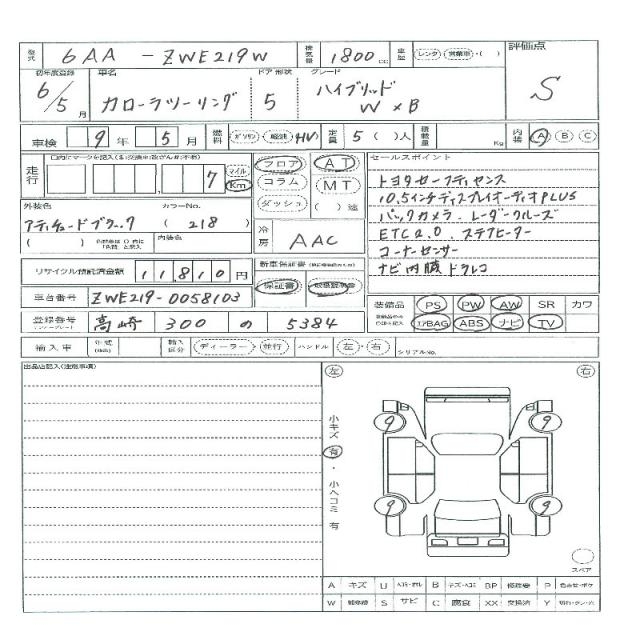 型式 6AA - ZWE219W 排気量 1800 cc 車歴 レンタ・営業車・( ) 評価点
初年度登録 車名 ドア 形状 グレード
6/5月 カローラツーリング 5 ハイブリッド W×B S
車検 9年 5月 燃料 ガソリン・軽油・HV 定員 5 ( )人 積載量 Kg 内装 A B C
走行 7 マイル Km フロア AT セールスポイント
コラム MT トヨタセーフティセンス
ダッシュ ( )速 10.5インチディスプレイオーディオPLUS
外装色 カラーNo. バックカメラ レーダークルーズ
アティチュードブラック (218) 冷房 AAC ETC2.0 ステアヒーター
( ) 内装色 コーナーセンサー
リサイクル預託済金額 11810円 新車保証書 ナビ内蔵ドラレコ
保証書 取扱説明書
車台番号 ZWE219-0058103 装備品 PS PW AW SR カワ
登録番号 高崎 300 の 5384 エアBAG ABS ナビ TV
輸入車 年式 輸入区分 ディーラー・並行 ハンドル 左・右 シリアルNo.
出品店記入(注意事項) 左 右
小キズ 有・小ヘコミ 有
9 9
9 9
スペア
A キズ U B BP 修理要 P 色あせ・ボケ
W S サビ C 腐食 XX 交換済 Y